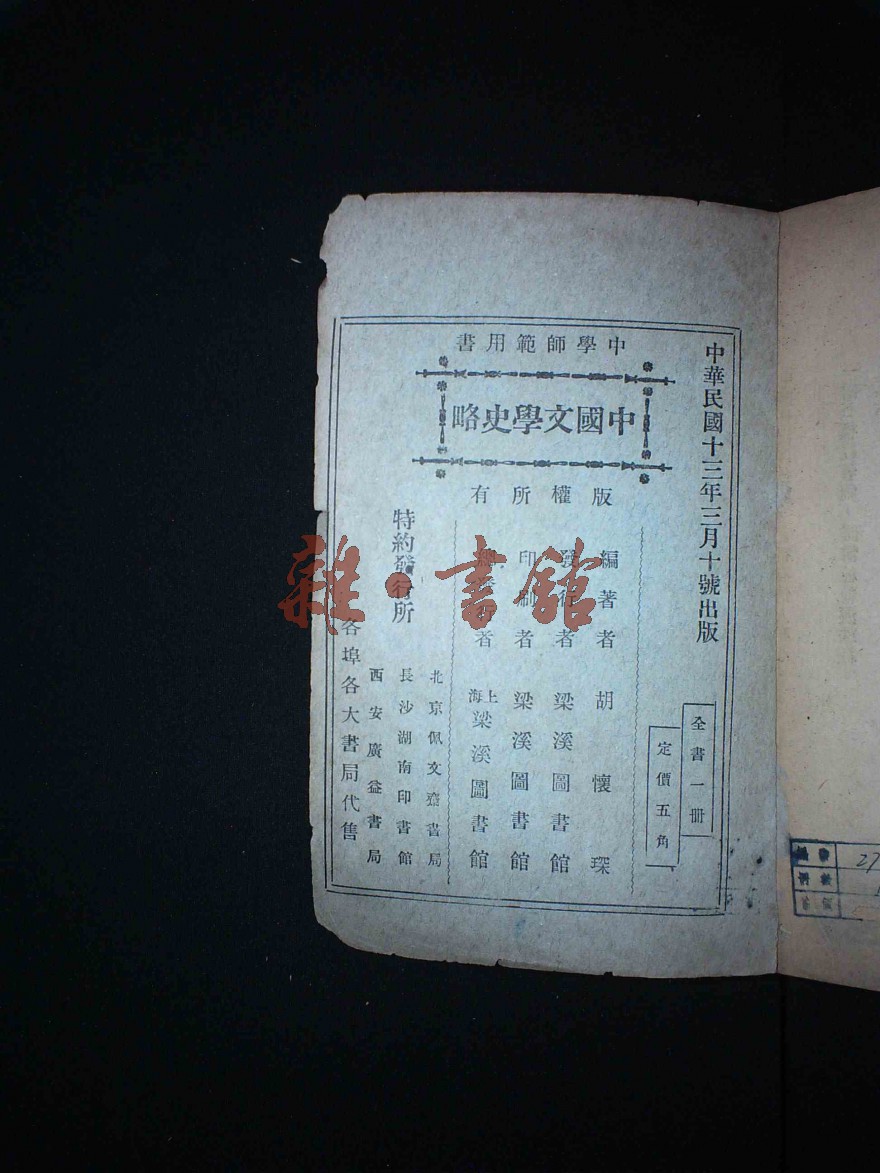 中華民國十三年三月十號出版
全書一册
定價五角
中學師範用書
中國文學史略
版權所有
編著者 胡懷琛
發行者 梁溪圖書館
印刷者 梁溪圖書館
者 上海梁溪圖書館
特約發行所
北京佩文齋書局
長沙湖南印書館
西安廣益書局
各埠各大書局代售
雜·書館
27